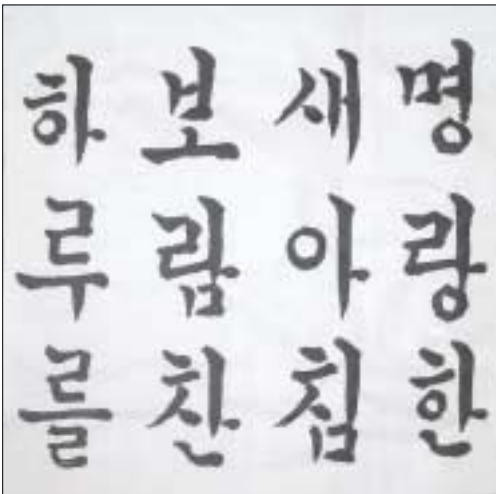 명랑한
새아침
보람찬
하루를